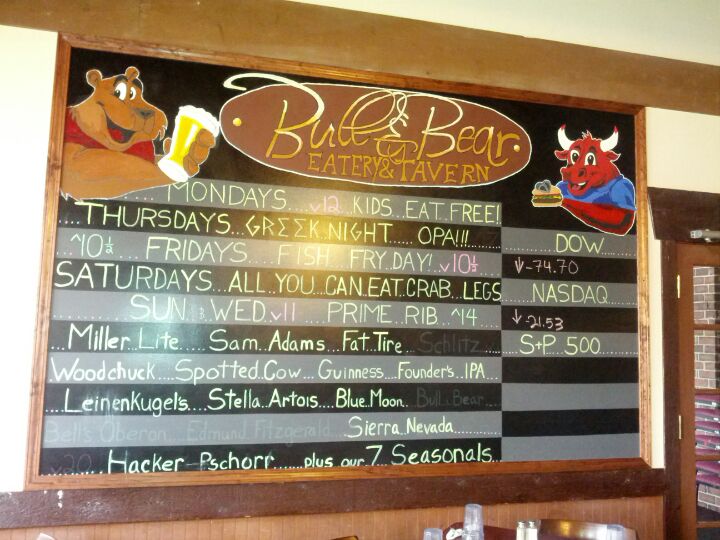 Bull & Bear
EATERY & TAVERN
MONDAYS....v12..KIDS..EAT..FREE!
....THURSDAYS...GRΣΣK.NIGHT...... OPA!!!
^10½ ... FRIDAYS.... FISH.. FRY..DAY!..v10½
SATURDAYS...ALL..YOU..CAN.EAT.CRAB..LEGS
SUN & WED..v11.... PRIME.. RIB..^14
...Miller..Lite.....Sam..Adams...Fat.Tire....Schlitz.....
Woodchuck....Spotted.Cow...Guinness...Founder's..IPA...
....Leinenkugel's....Stella..Artois..Blue.Moon..Bull & Bear...
Bell's Oberon Edmund Fitzgerald Sierra..Nevada........
v20.. Hacker-Pschorr.......plus our 7 Seasonals...
DOW
↓-74.70
NASDAQ
↓-21.53
S+P 500